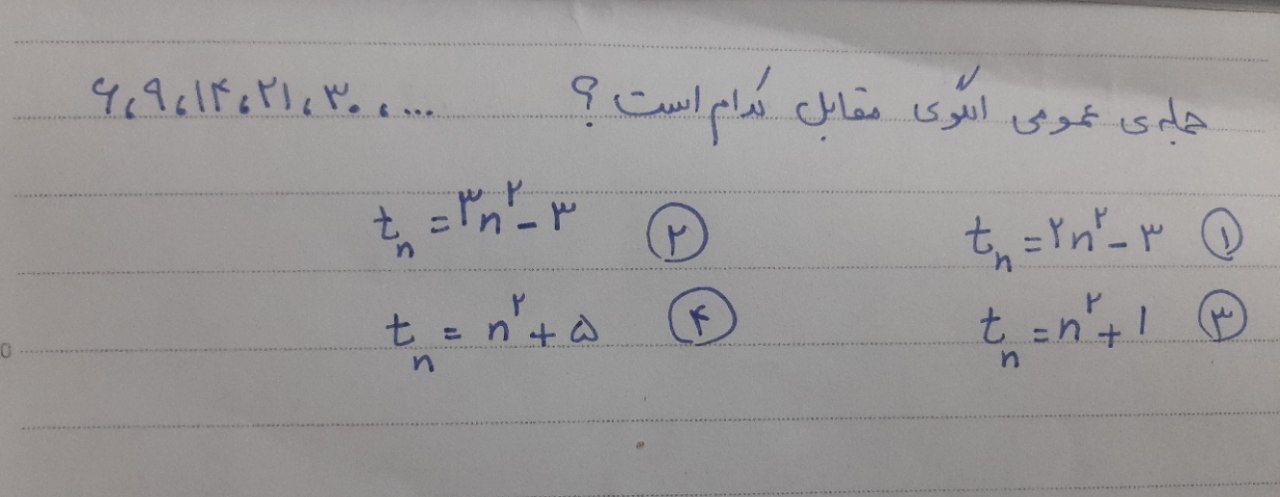 جمله‌ی عمومی الگوی مقابل کدام است؟ ۶، ۹، ۱۴، ۲۱، ۳۰، ...
① tₙ = ۲n² - ۳ ② tₙ = ۳n² - ۳
③ tₙ = n² + ۱ ④ tₙ = n² + ۵